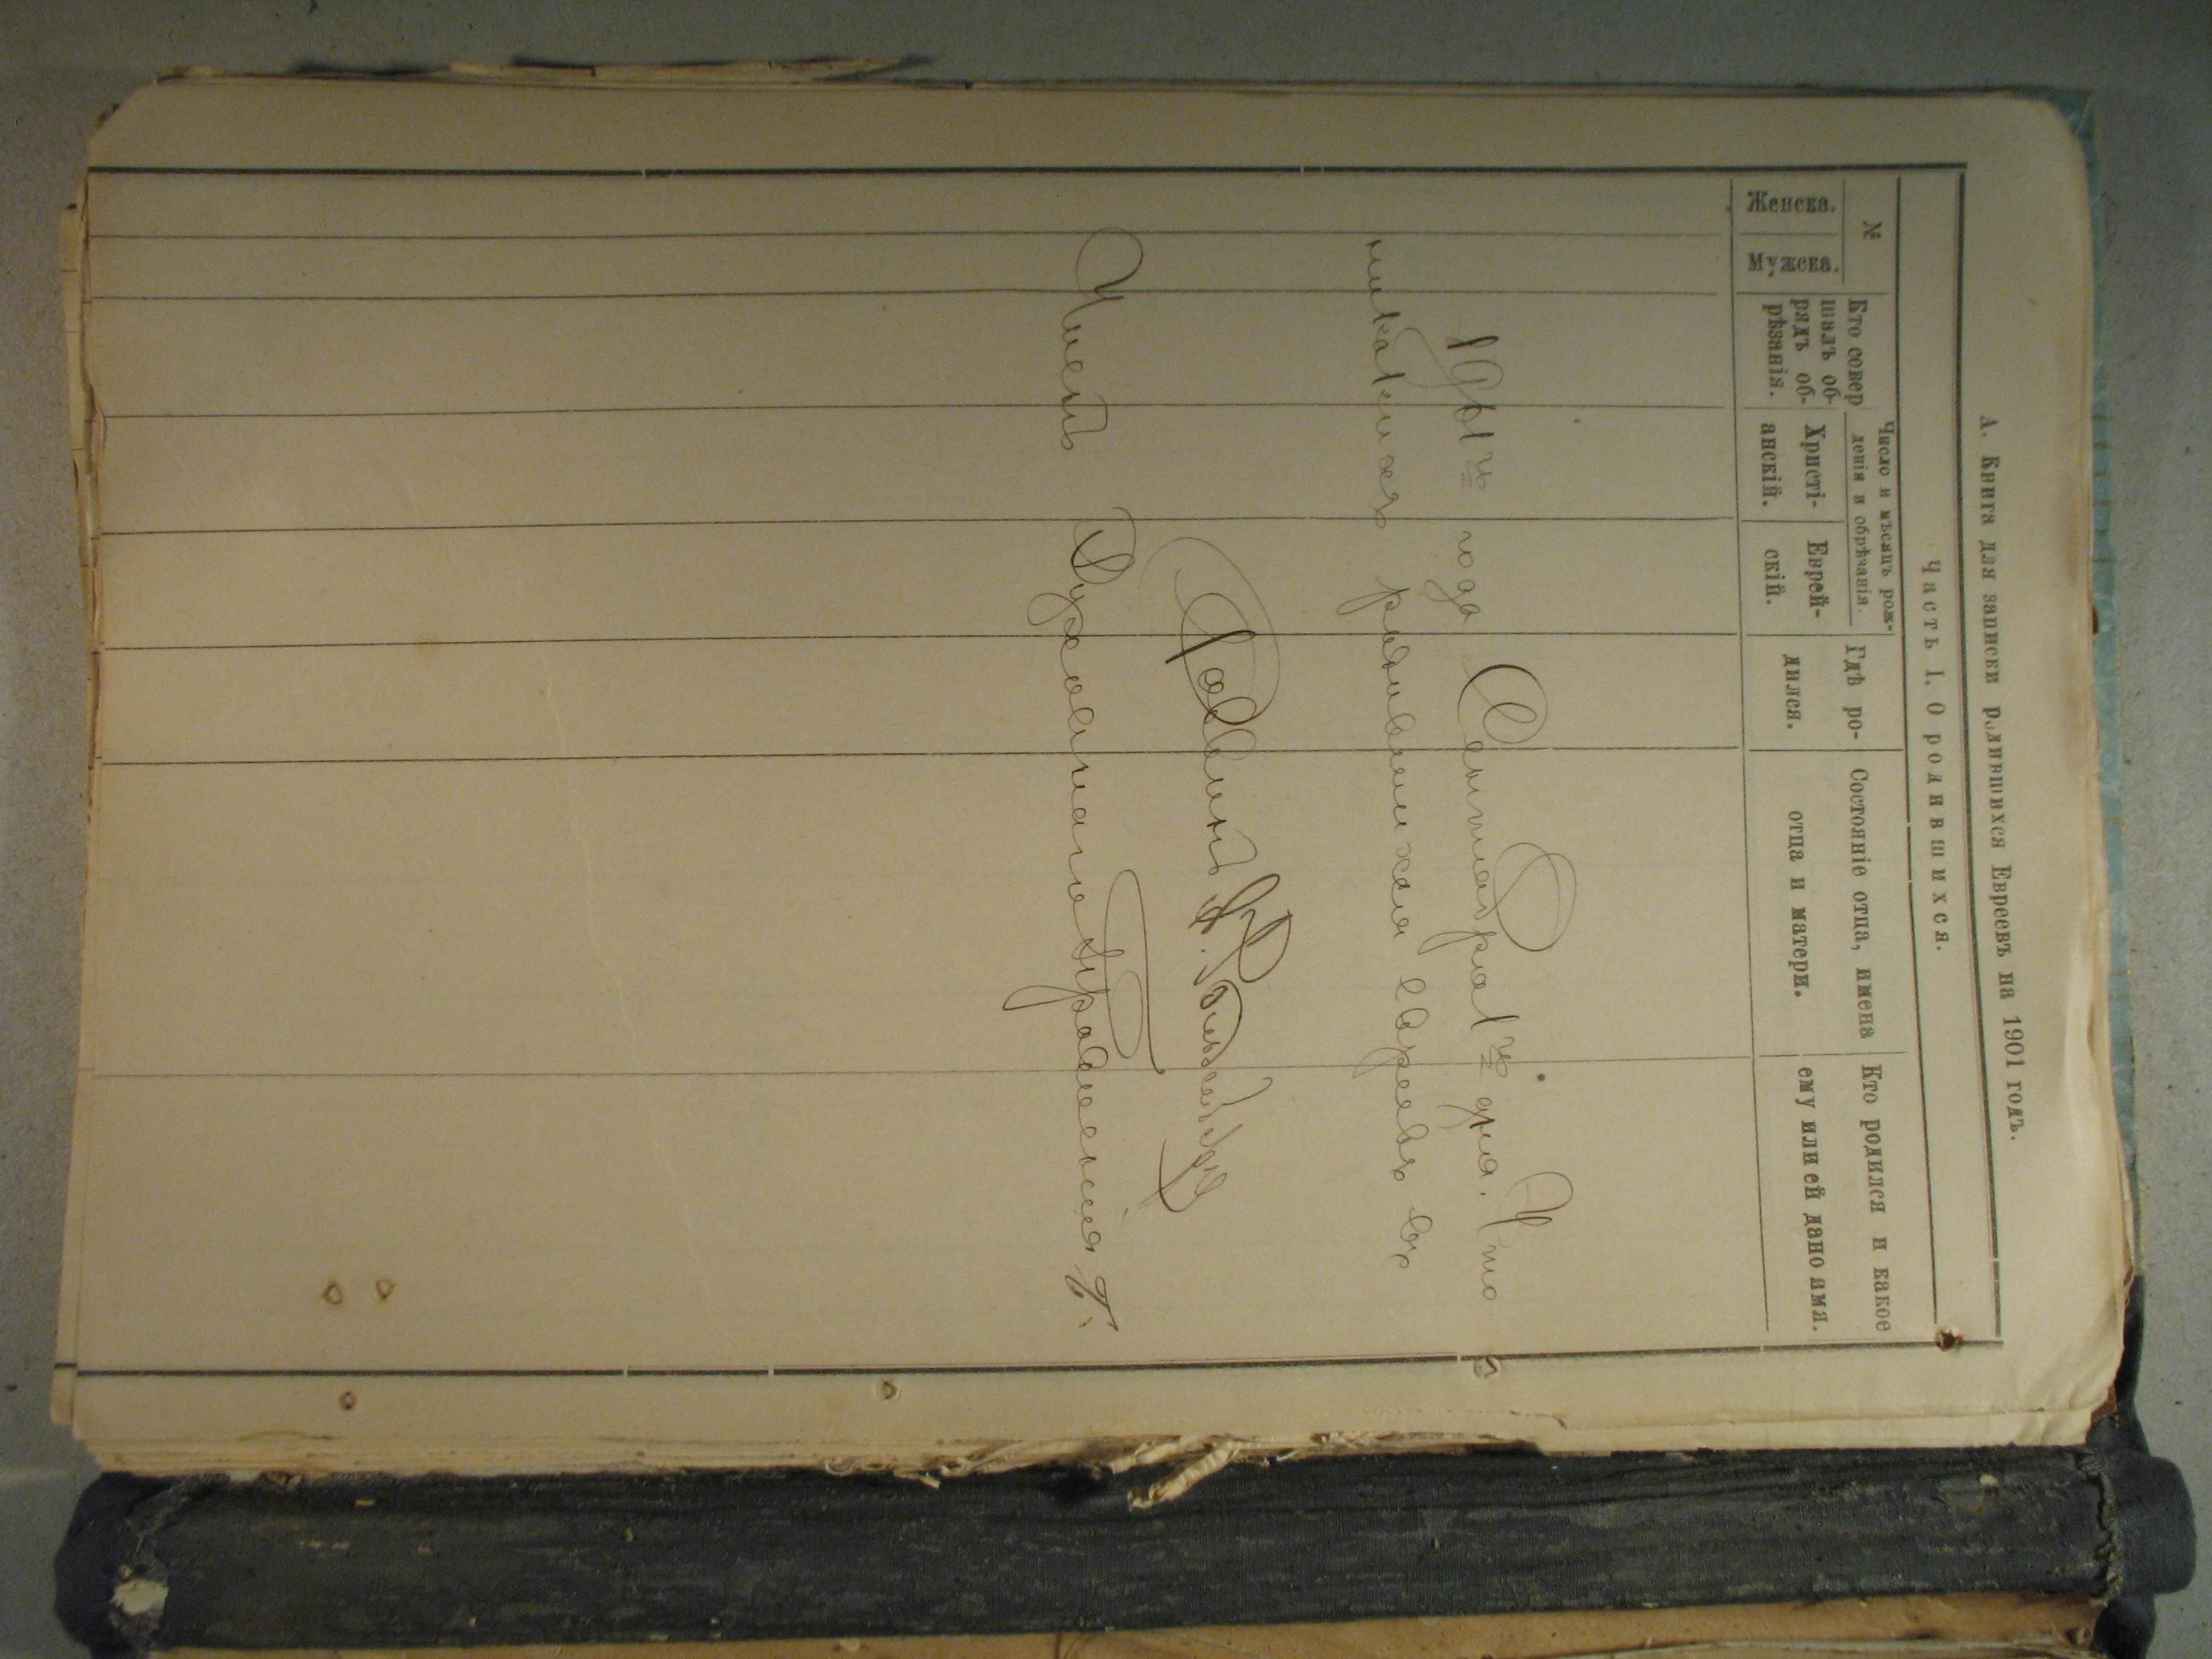 А. Книга для записки родившихся Евреевъ на 1901 годъ.
Часть I. О родившихся.
№
Женска.
Мужска.
Кто совер
шалъ об-
рядъ об-
рѣзанія.
Число и мѣсяцъ рож-
денія и обрѣзанія.
Христі-
анскій.
Еврей-
скій.
Гдѣ ро-
дился.
Состояніе отца, имена
отца и матери.
Кто родился и какое
ему или ей дано имя.
1901 го года Сентября 1 го дня. Что
никакихъ родившихся евреевъ въ
Раввинъ
Членъ Духовнаго Правленія